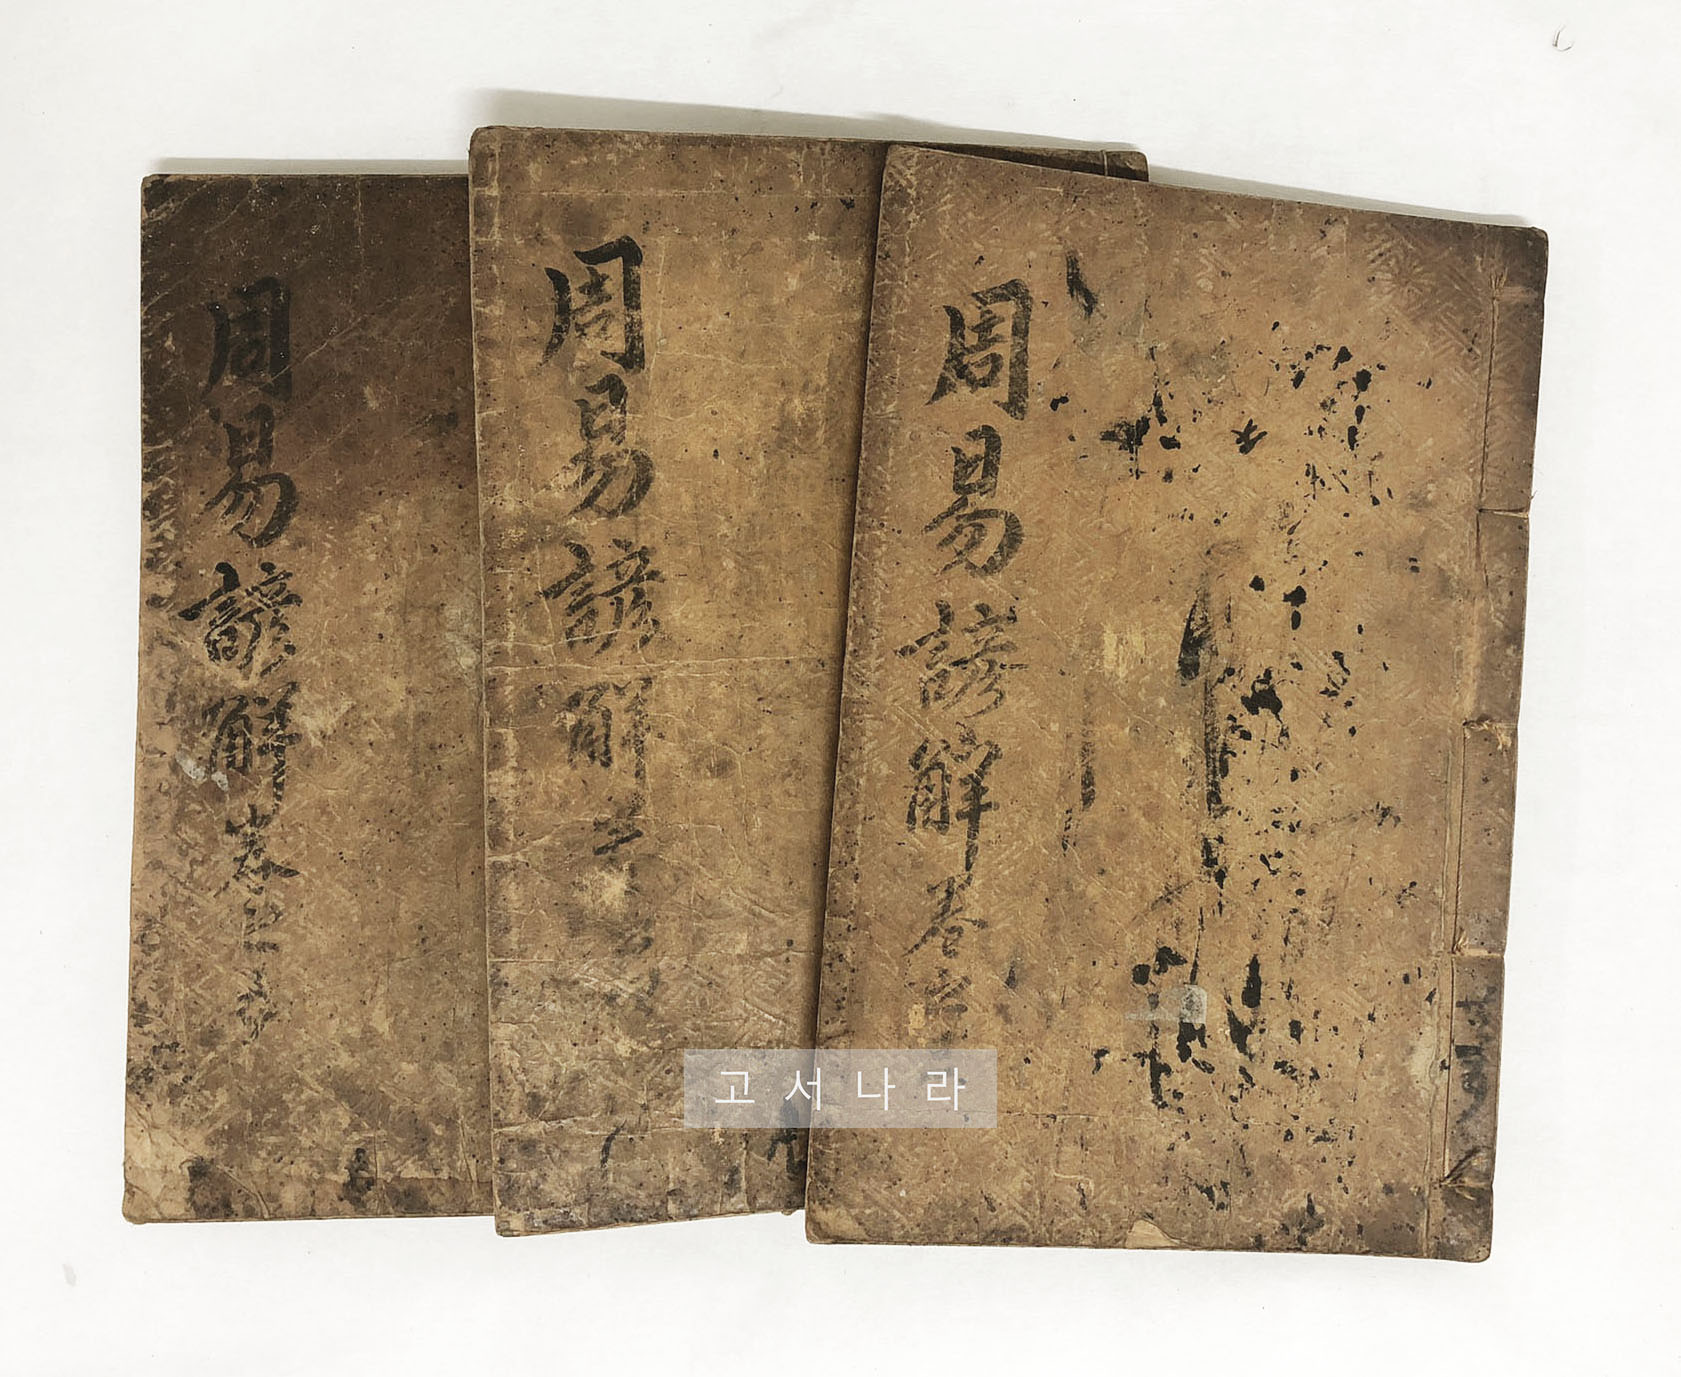 周易諺解 卷之
周易諺解
周易諺解 卷之
고서나라